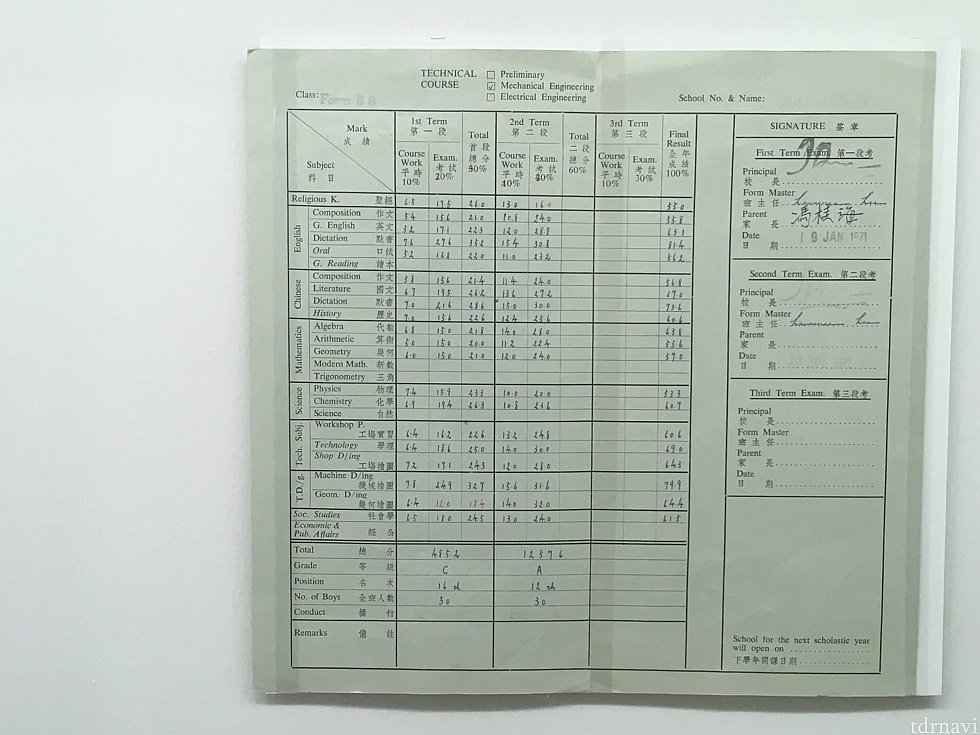 TECHNICAL COURSE
Preliminary
Mechanical Engineering
Electrical Engineering
Class: Form 5B
School No. & Name:
Mark 成績
Subject 科目
1st Term 第一段
Course Work 平時 10%
Exam. 考試 20%
Total 首段總分 30%
2nd Term 第二段
Course Work 平時
Exam. 考試
Total 二段總分 60%
3rd Term 第三段
Course Work 平時 10%
Exam. 考試 30%
Final Result 全年成績 100%
Religious K. 聖經 6.5 19.5 26.0 13.0 16.0 55.0
English
Composition 作文 5.4 15.6 21.0 10.8 24.0 55.8
G. English 英文 5.2 17.1 22.3 12.0 28.8 63.1
Dictation 默書 7.6 27.6 35.2 15.4 30.8 81.4
Oral 口試 5.2 16.8 22.0 11.0 23.2 56.2
G. Reading 讀本
Chinese
Composition 作文 5.8 15.6 21.4 11.4 24.0 56.8
Literature 國文 6.7 19.5 26.2 13.6 27.2 67.0
Dictation 默書 7.0 21.6 28.6 15.0 30.0 73.6
History 歷史 7.0 15.6 22.6 12.4 25.6 60.6
Mathematics
Algebra 代數 6.8 15.0 21.8 14.0 28.0 63.8
Arithmetic 算術 5.0 15.0 20.0 11.2 22.4 53.6
Geometry 幾何 6.0 15.0 21.0 12.0 24.0 57.0
Modern Math. 新數
Trigonometry 三角
Science
Physics 物理 7.4 15.9 23.3 10.0 20.0 53.3
Chemistry 化學 6.9 19.4 26.3 10.8 23.6 60.7
Science 自然
Tech. Subj.
Workshop P. 工場實習 6.4 16.2 22.6 13.2 24.8 60.6
Technology 學理 6.4 18.6 25.0 14.0 30.0 69.0
Shop D/ing 工場繪圖 7.2 17.1 24.3 12.0 28.0 64.3
T.D/g.
Machine D/ing 機械繪圖 7.8 24.9 32.7 15.6 31.6 79.9
Geom. D/ing 幾何繪圖 6.4 12.0 18.4 14.0 32.0 64.4
Soc. Studies 社會學 6.5 18.0 24.5 13.0 24.0 61.5
Economic & Pub. Affairs 經公
Total 總分 485.2 1257.6
Grade 等級 C A
Position 名次 16th 12th
No. of Boys 全班人數 30 30
Conduct 操行
Remarks 備註
SIGNATURE 簽章
First Term Exam. 第一段考
Principal
校長
Form Master
班主任
Parent
家長 馮桂海
Date 19 JAN 1971
日期
Second Term Exam. 第二段考
Principal
校長
Form Master
班主任
Parent
家長
Date
日期
Third Term Exam. 第三段考
Principal
校長
Form Master
班主任
Parent
家長
Date
日期
School for the next scholastic year
will open on
下學年開課日期
tdrnavi